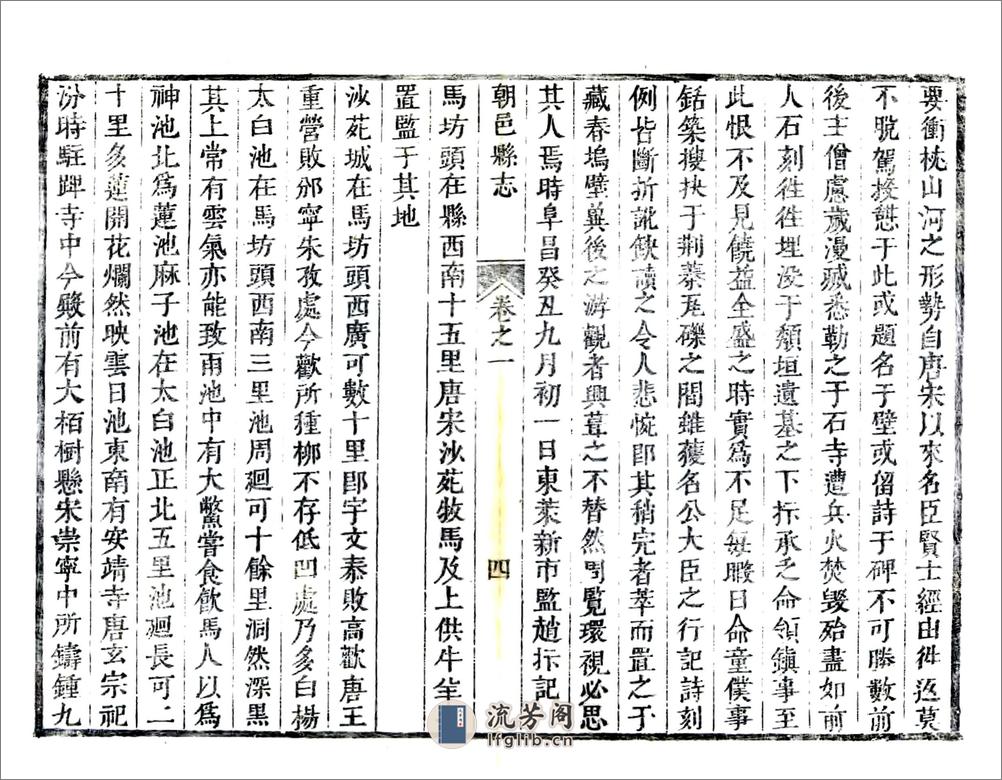 要衝枕山河之形勢自唐宋以來名臣賢士經由徃返莫
不脫駕投憇于此或題名于壁或留詩于碑不可勝數前
後主僧慮歲漫滅悉勒之于石寺遭兵火焚毀殆盡如前
人石刻徃徃埋没于頹垣遺基之下抃承乏命領鎮事至
此恨不及見饒益全盛之時實爲不足每暇日命童僕事
銛築搜抉于荆蓁瓦礫之間雖獲名公大臣之行記詩刻
例皆斷折訛缺讀之令人悲惋卽其稍完者萃而置之于
藏春塢壁冀後之游觀者興葺之不替然周覽環視必思
其人焉時阜昌癸丑九月初一日東萊新市監趙抃記
朝邑縣志
卷之一
四
馬坊頭在縣西南十五里唐宋沙苑牧馬及上供牛羊
置監于其地
沙苑城在馬坊頭西廣可數十里卽宇文泰敗高歡唐王
重營敗邠寧朱孜處今歡所種柳不存低凹處乃多白楊
太白池在馬坊頭西南三里池周廻可十餘里洞然深黑
其上常有雲氣亦能致雨池中有大鱉嘗食飲馬人以爲
神池北爲蓮池麻子池在太白池正北五里池廻長可二
十里多蓮開花爛然映雲日池東南有安靖寺唐玄宗祀
汾時駐蹕寺中今殿前有大栢樹懸宋崇寧中所鑄鍾九
流芳阁
lfglib.cn